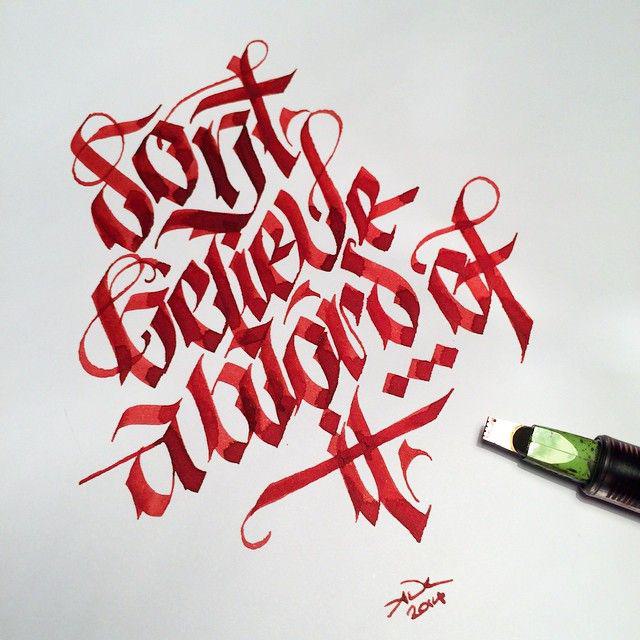 Dont
Believe
a word of
it
2014